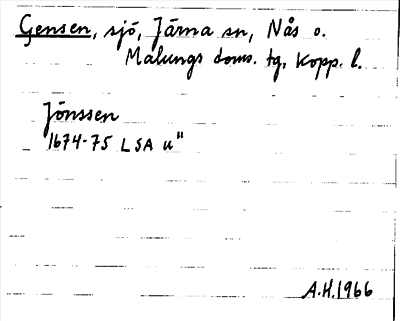 Gensen, sjö, Järna sn, Nås o.
Malungs doms. tg, Kopp. l.
Jönssen
1674-75 LSA u"
A.H. 1966